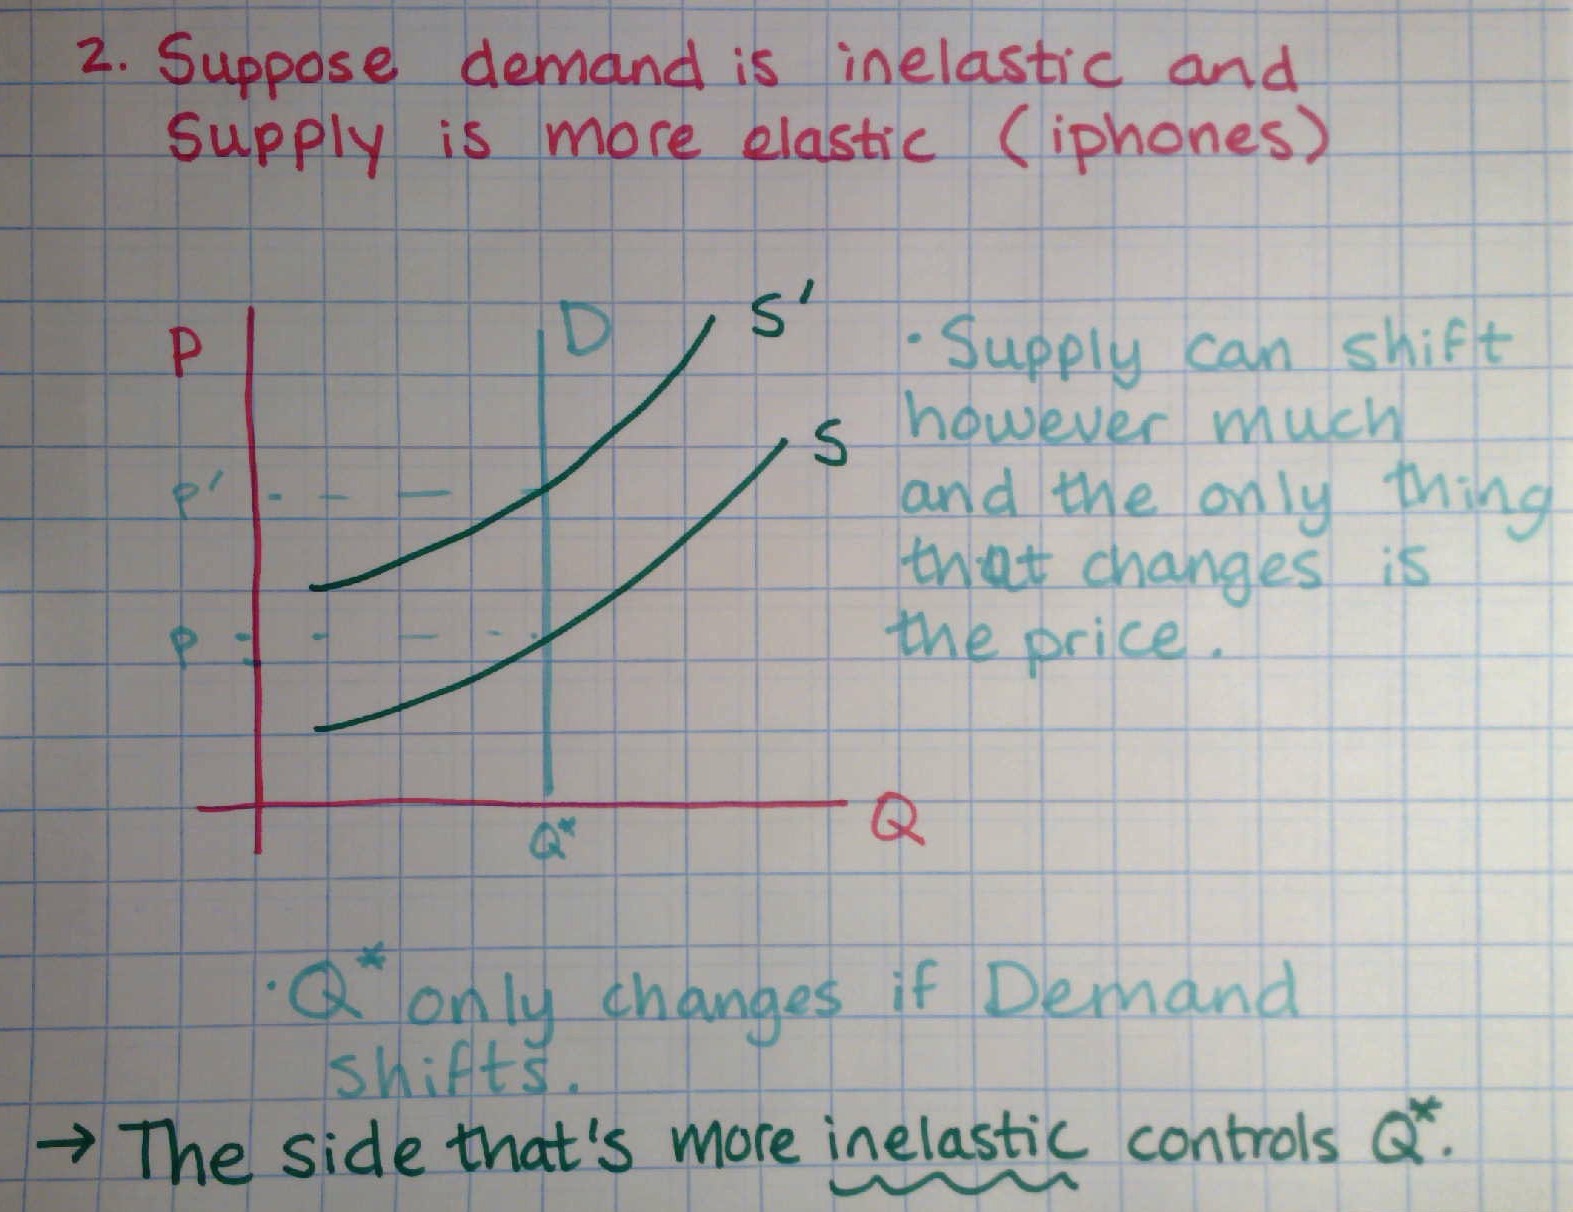 2. Suppose demand is inelastic and
Supply is more elastic (iphones)
P
D
S'
S
P'
P
Q*
Q
· Supply can shift
however much
and the only thing
that changes is
the price.
· Q* only changes if Demand
shifts.
→ The side that's more inelastic controls Q*.